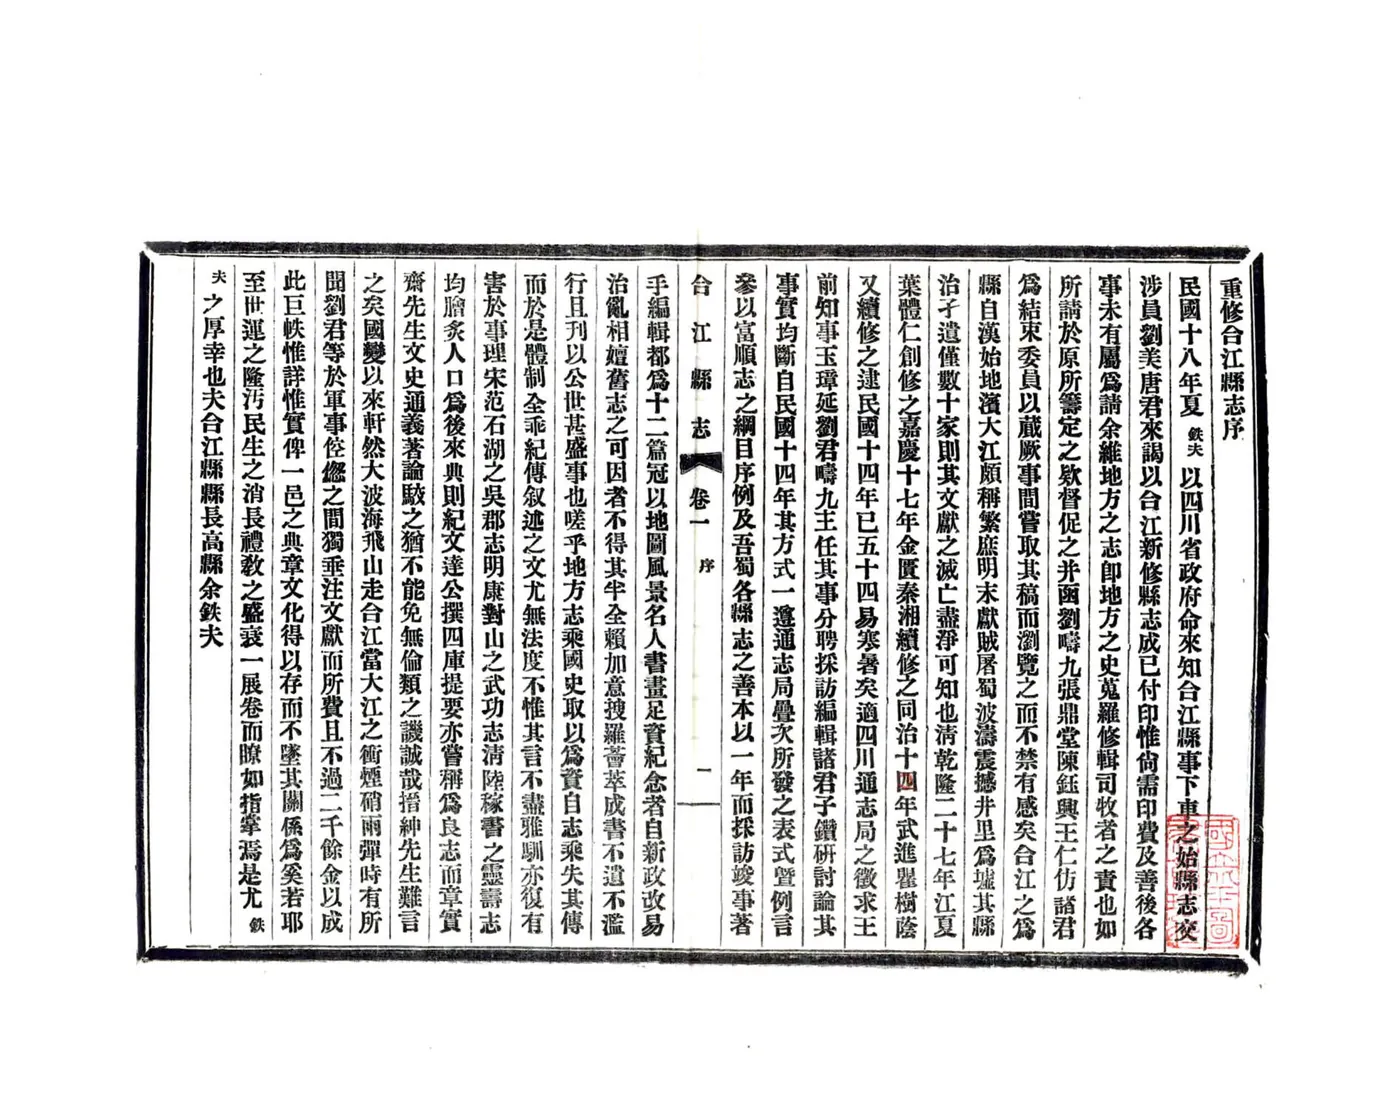 重修合江縣志序
民國十八年夏鉄夫以四川省政府命來知合江縣事下車之始縣志交
涉員劉美唐君來謁以合江新修縣志成已付印惟尙需印費及善後各
事未有屬爲請余維地方之志卽地方之史蒐羅修輯司牧者之責也如
所請於原所籌定之欵督促之幷函劉疇九張鼎堂陳鈺興王仁仿諸君
爲結束委員以蕆厥事間嘗取其稿而瀏覽之而不禁有感矣合江之爲
縣自漢始地濱大江頗稱繁庶明末獻賊屠蜀波濤震撼井里爲墟其縣
治孑遺僅數十家則其文獻之滅亡盡淨可知也淸乾隆二十七年江夏
葉體仁創修之嘉慶十七年金匱秦湘續修之同治十四年武進瞿樹蔭
又續修之逮民國十四年已五十四易寒暑矣適四川通志局之徵求王
前知事玉璋延劉君疇九主任其事分聘採訪編輯諸君子鑽硏討論其
事實均斷自民國十四年其方式一遵通志局疊次所發之表式曁例言
參以富順志之綱目序例及吾蜀各縣志之善本以一年而採訪竣事著
合江縣志 卷一 序 一
手編輯都爲十二篇冠以地圖風景名人書畫足資紀念者自新政改易
治亂相嬗舊志之可因者不得其半全賴加意搜羅薈萃成書不遺不濫
行且刋以公世甚盛事也嗟乎地方志乘國史取以爲資自志乘失其傳
而於是體制全乖紀傳叙述之文尤無法度不惟其言不盡雅馴亦復有
害於事理宋范石湖之吳郡志明康對山之武功志淸陸稼書之靈壽志
均膾炙人口爲後來典則紀文達公撰四庫提要亦嘗稱爲良志而章實
齋先生文史通義著論駮之猶不能免無倫類之譏誠哉搢紳先生難言
之矣國變以來軒然大波海飛山走合江當大江之衝煙硝雨彈時有所
聞劉君等於軍事倥傯之間獨垂注文獻而所費且不過二千餘金以成
此巨帙惟詳惟實俾一邑之典章文化得以存而不墜其關係爲奚若耶
至世運之隆汚民生之消長禮敎之盛衰一展卷而瞭如指掌焉是尤鉄
夫之厚幸也夫合江縣縣長高縣余鉄夫